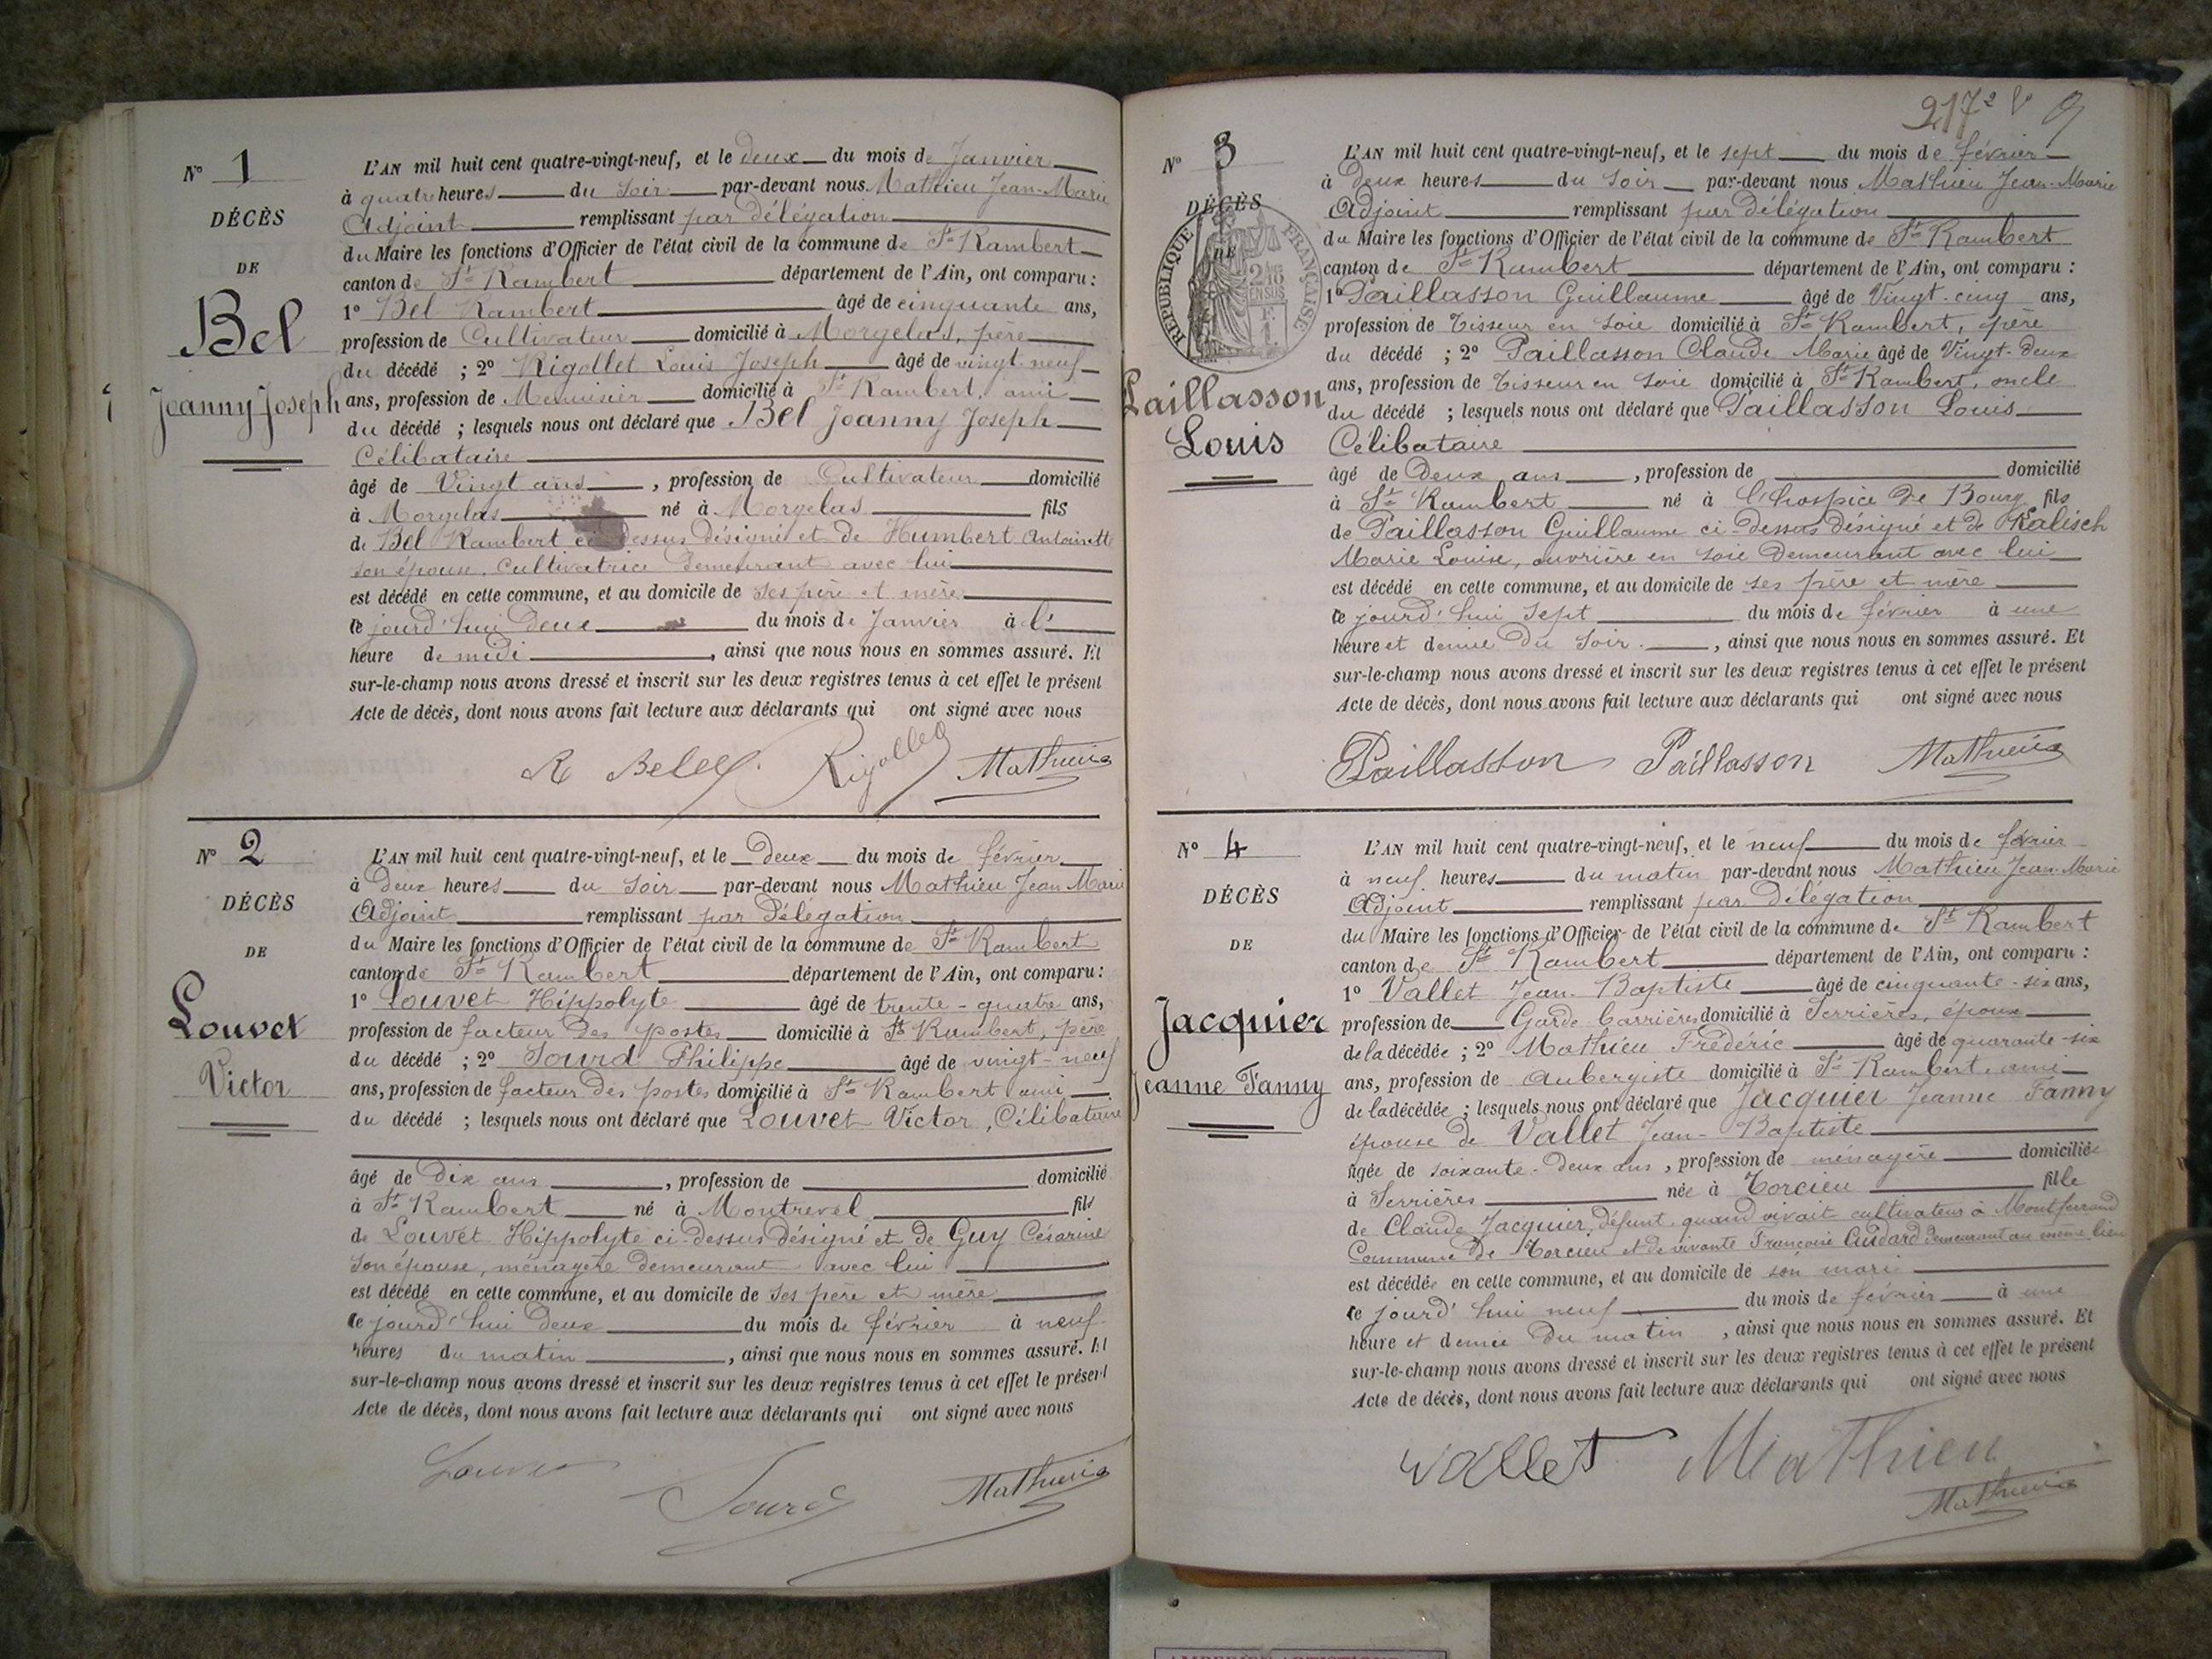 N° 1
DÉCÈS
DE
Bel
Joanny Joseph
L'AN mil huit cent quatre-vingt-neuf, et le deux du mois de Janvier
à quatre heures du soir par-devant nous Mathieu Jean-Marie
Adjoint remplissant par délégation
du Maire les fonctions d'Officier de l'état civil de la commune de St Rambert
canton de St Rambert département de l'Ain, ont comparu :
1° Bel Rambert âgé de cinquante ans,
profession de Cultivateur domicilié à Morgelas, père
du décédé ; 2° Rigollet Louis Joseph âgé de vingt-neuf
ans, profession de Menuisier domicilié à St Rambert, ami
du décédé ; lesquels nous ont déclaré que Bel Joanny Joseph
Célibataire
âgé de Vingt ans, profession de Cultivateur domicilié
à Morgelas né à Morgelas fils
de Bel Rambert ci-dessus désigné et de Humbert Antoinette
son épouse, cultivatrice demeurant avec lui
est décédé en cette commune, et au domicile de ses père et mère
ce jourd'hui deux du mois de Janvier à l'
heure de midi, ainsi que nous nous en sommes assuré. Et
sur-le-champ nous avons dressé et inscrit sur les deux registres tenus à cet effet le présent
Acte de décès, dont nous avons fait lecture aux déclarants qui ont signé avec nous
R Bel Rigollet Mathieu
N° 2
DÉCÈS
DE
Louvet
Victor
L'AN mil huit cent quatre-vingt-neuf, et le Deux du mois de février
à Deux heures du soir par-devant nous Mathieu Jean Marie
Adjoint remplissant par Délégation
du Maire les fonctions d'Officier de l'état civil de la commune de St Rambert
canton de St Rambert département de l'Ain, ont comparu :
1° Louvet Hippolyte âgé de trente-quatre ans,
profession de facteur des postes domicilié à St Rambert, père
du décédé ; 2° Sourd Philippe âgé de vingt-neuf
ans, profession de facteur des postes domicilié à St Rambert ami
du décédé ; lesquels nous ont déclaré que Louvet Victor, Célibataire
âgé de Dix ans, profession de domicilié
à St Rambert né à Montrevel fils
de Louvet Hippolyte ci-dessus désigné et de Guy Césarine
son épouse, ménagère demeurant avec lui
est décédé en cette commune, et au domicile de ses père et mère
ce jourd'hui deux du mois de février à neuf
heures du matin, ainsi que nous nous en sommes assuré. Et
sur-le-champ nous avons dressé et inscrit sur les deux registres tenus à cet effet le présent
Acte de décès, dont nous avons fait lecture aux déclarants qui ont signé avec nous
Louvet Sourd Mathieu
217e
N° 3
DÉCÈS
DE
RÉPUBLIQUE FRANÇAISE
2/10
EN SUS
Paillasson
Louis
L'AN mil huit cent quatre-vingt-neuf, et le sept du mois de février
à Deux heures du soir par-devant nous Mathieu Jean-Marie
Adjoint remplissant par délégation
du Maire les fonctions d'Officier de l'état civil de la commune de St Rambert
canton de St Rambert département de l'Ain, ont comparu :
1° Paillasson Guillaume âgé de Vingt-cinq ans,
profession de Tisseur en soie domicilié à St Rambert, père
du décédé ; 2° Paillasson Claude Marie âgé de Vingt-deux
ans, profession de Tisseur en soie domicilié à St Rambert, oncle
du décédé ; lesquels nous ont déclaré que Paillasson Louis
Célibataire
âgé de Deux ans, profession de domicilié
à St Rambert né à l'hospice de Bourg, fils
de Paillasson Guillaume ci-dessus désigné et de Kalisch
Marie Louise, ouvrière en soie demeurant avec lui
est décédé en cette commune, et au domicile de ses père et mère
ce jourd'hui sept du mois de février à une
heure et demie du soir, ainsi que nous nous en sommes assuré. Et
sur-le-champ nous avons dressé et inscrit sur les deux registres tenus à cet effet le présent
Acte de décès, dont nous avons fait lecture aux déclarants qui ont signé avec nous
Paillasson Paillasson Mathieu
N° 4
DÉCÈS
DE
Jacquier
Jeanne Fanny
L'AN mil huit cent quatre-vingt-neuf, et le neuf du mois de février
à neuf heures du matin par-devant nous Mathieu Jean-Marie
Adjoint remplissant par Délégation
du Maire les fonctions d'Officier de l'état civil de la commune de St Rambert
canton de St Rambert département de l'Ain, ont comparu :
1° Vallet Jean-Baptiste âgé de cinquante-six ans,
profession de Garde barrières domicilié à Serrières, époux
de la décédée ; 2° Mathieu Frédéric âgé de quarante-six
ans, profession de Aubergiste domicilié à St Rambert, ami
de la décédée ; lesquels nous ont déclaré que Jacquier Jeanne Fanny
épouse de Vallet Jean-Baptiste
âgée de soixante-deux ans, profession de ménagère domiciliée
à Serrières née à Torcieu fille
de Claude Jacquier, défunt, quand vivait cultivateur à Montferrand
Commune de Torcieu et de vivante Françoise Cudard demeurant au même lieu
est décédée en cette commune, et au domicile de son mari
ce jourd'hui neuf du mois de février à une
heure et demie du matin, ainsi que nous nous en sommes assuré. Et
sur-le-champ nous avons dressé et inscrit sur les deux registres tenus à cet effet le présent
Acte de décès, dont nous avons fait lecture aux déclarants qui ont signé avec nous
Vallet Mathieu
Mathieu